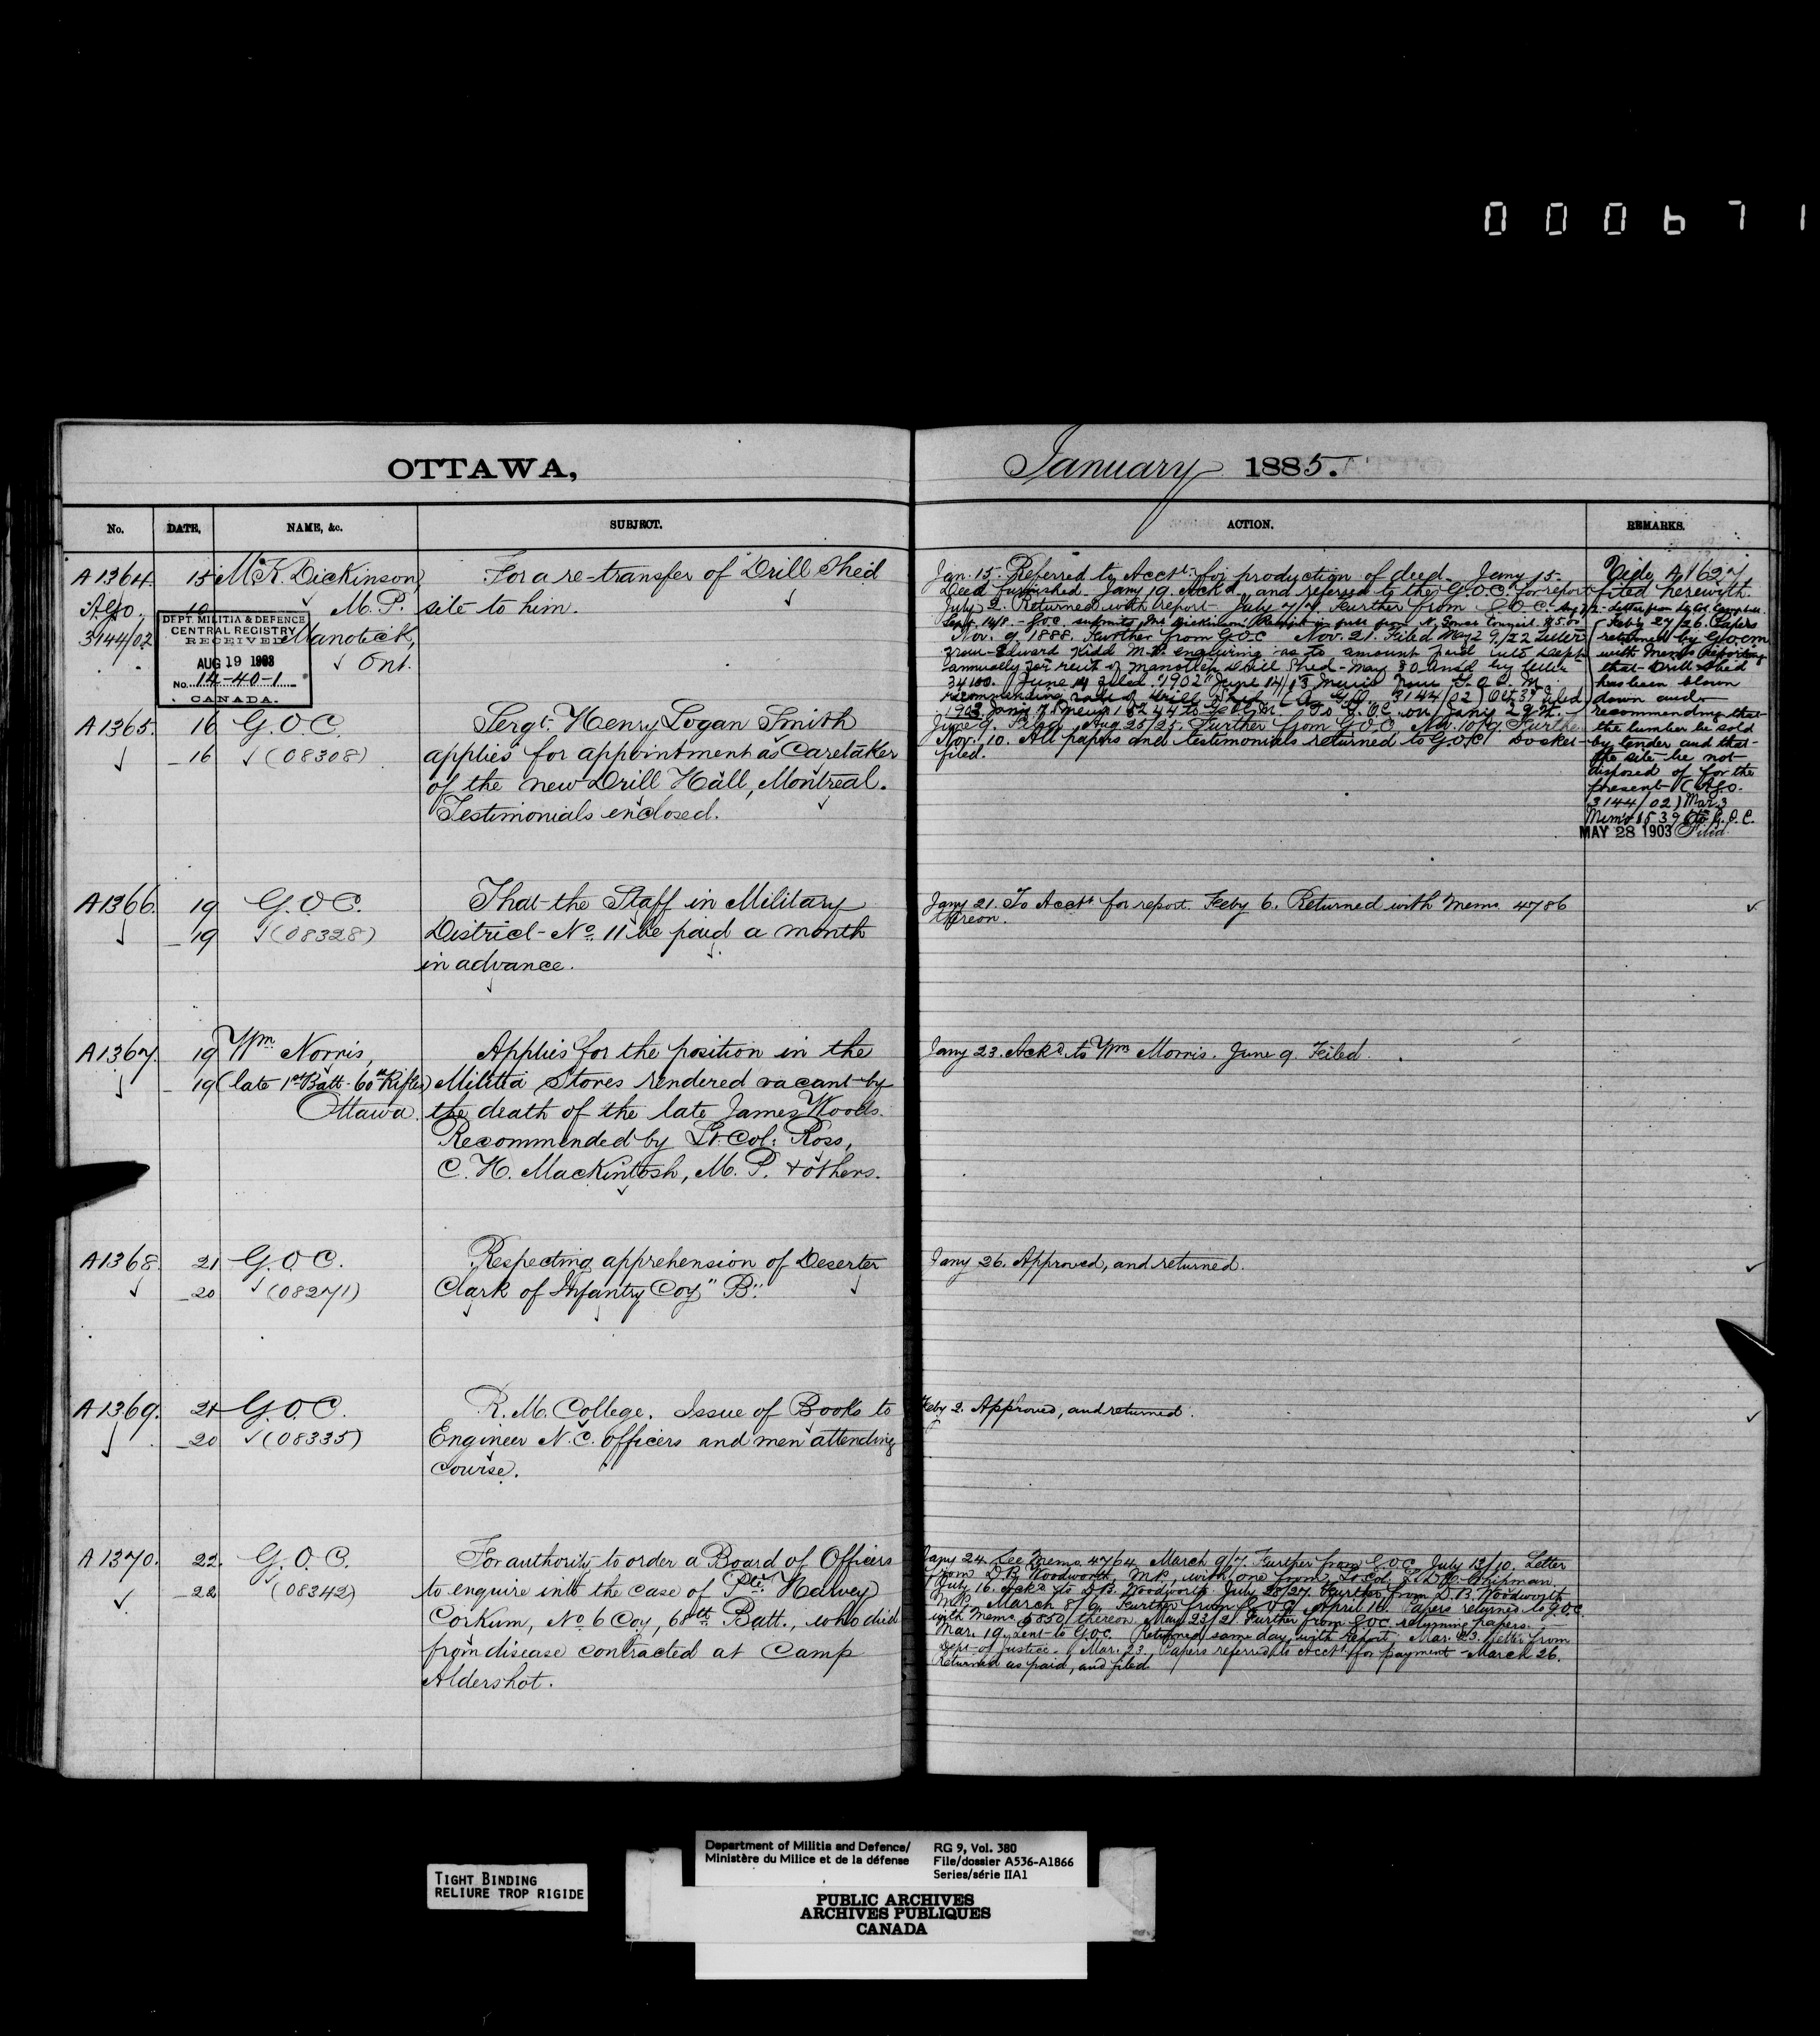 000671
OTTAWA,
January 1885.
No.
DATE,
NAME, &c.
SUBJECT.
ACTION.
REMARKS.
A1364. 15 M.K. Dickinson, For a re-transfer of Drill Shed
Ago. 10 M.P. site to him.
3144/02 Manotick,
Ont.
DEPT. MILITIA & DEFENCE
CENTRAL REGISTRY
RECEIVED
AUG 19 1903
No. 14-40-1
CANADA.
Jan. 15. Referred to Acct. for production of deed. Jany 15.
Deed furnished. Jany 19. Ack'd and referred to the G.O.C. for report
July 2. Returned with report. July 7/7. Further from G.O.C.
Sept. 14/8. G.O.C. submits Mr Dickinson's Receipt in full from N. Gower Council. $5.00
Nov. 9 1888. Further from G.O.C. Nov. 21. Filed May 29/22 Letter
from Edward Kidd M.P. enquiring as to amount paid into Dept
annually for rent of Manotick Drill Shed - May 30 Ansd by letter
34100. June 14 Filed. "1902" June 14/13 Memo from G.O.C.M.
recommending sale of drill Shed (A.G.O. 3144/02) Oct 3rd Filed
1903 Jany 17. Memo 15244 to To G.O.C. on Jany 29th.
Vide A1627
filed herewith.
Feby 27/26. Papers
returned by
with memo reporting
that Drill Shed
has been blown
down and
recommending that
the lumber be sold
by tender and that
the site be not
disposed of for the
present (A.G.O.
3144/02) Mar 3
Memo 1539 to G.O.C.
MAY 28 1903 Filed
A1365. 16 G.O.C. Sergt. Henry Logan Smith
16 (08308) applies for appointment as Caretaker
of the new Drill Hall, Montreal.
Testimonials enclosed.
June 9. Filed Aug 25/25. Further from G.O.C. Nov. 10/9. Further
Nov. 10. All papers and testimonials returned to G.O.C. Docket
filed.
A1366. 19 G.O.C. That the Staff in Military
19 (08328) District No. 11 be paid a month
in advance.
Jany 21. To Acct for report. Feby 6. Returned with Memo 4786
thereon.
A1367. 19 Wm Norris, Applies for the position in the
19 (late 1st Batt. 60th Rifles) Militia Stores rendered vacant by
Ottawa. the death of the late James Woods.
Recommended by Lt. Col. Ross,
C.H. MacKintosh, M.P. & others.
Jany 23. Ackd to Wm Morris. June 9. Filed.
A1368. 21 G.O.C. Respecting apprehension of Deserter
20 (08271) Clark of Infantry Coy "B".
Jany 26. Approved, and returned.
A1369. 21 G.O.C. R.M. College. Issue of Books to
20 (08335) Engineer N.C. officers and men attending
course.
Feby 2. Approved, and returned.
A1370. 22. G.O.C. For authority to order a Board of Officers
22 (08342) to enquire into the case of Pte. Halvey
Corkum, No. 6 Coy, 68th Batt., who died
from disease contracted at Camp
Aldershot.
Jany 24. See Memo 4764. March 9/7. Further from G.O.C. July 13/10. Letter
from D.B. Woodworth, M.P., with one from Lt. Col. L. deV. Chipman
July 16. Ackd to D.B. Woodworth. July 28/27. Further from D.B. Woodworth
M.P. March 8/6. Further from G.O.C. April 16. Papers returned to G.O.C.
with Memo 5850 thereon. May 23/21 Further from G.O.C. returning papers.
Mar. 19. Sent to G.O.C. Returned same day with Report. Mar. 23. Letter from
Dept. of Justice. Mar. 23. Papers referred to Acct for payment - March 26.
Returned as paid, and filed.
TIGHT BINDING
RELIURE TROP RIGIDE
Department of Militia and Defence/
Ministère du Milice et de la défense
RG 9, Vol. 380
File/dossier A536-A1866
Series/série IIA1
PUBLIC ARCHIVES
ARCHIVES PUBLIQUES
CANADA